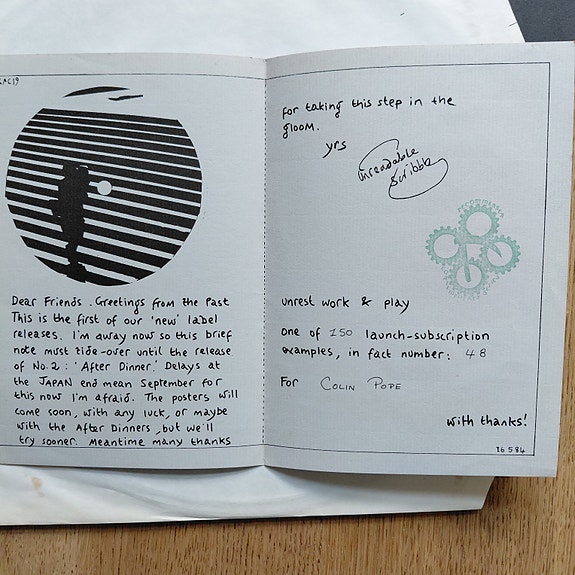 Dear Friends. Greetings from the Past
This is the first of our 'new' label
releases. I'm away now so this brief
note must tide-over until the release
of No.2: 'After Dinner.' Delays at
the JAPAN end mean September for
this now I'm afraid. The posters will
come soon, with any luck, or maybe
with the After Dinners, but we'll
try sooner. Meantime many thanks
for taking this step in the
gloom.
yrs
unreadable
scribble
RECOMMENDED
unrest work & play
one of 150 launch-subscription
examples, in fact number: 48
For COLIN POPE
with thanks!
16 5 84